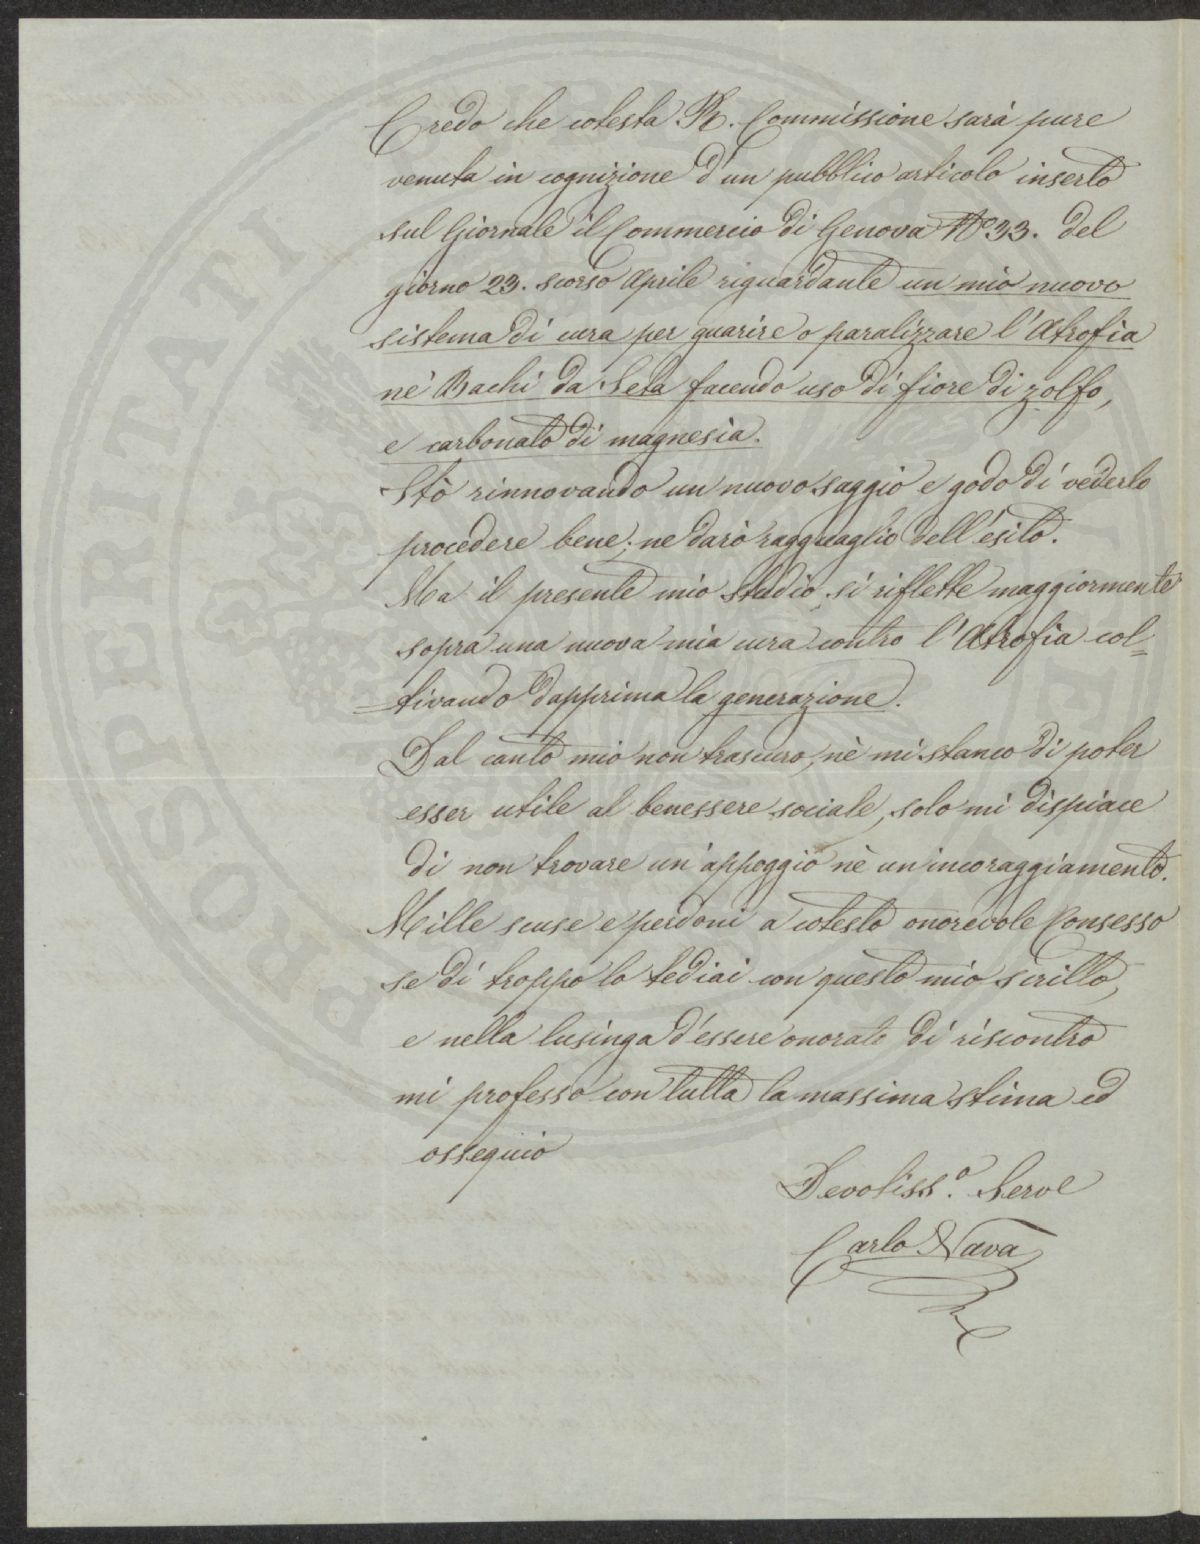 Credo che cotesta R. Commissione sarà pure
venuta in cognizione d'un pubblico articolo inserto
sul Giornale il Commercio di Genova N° 33. del
giorno 23. scorso Aprile riguardante un mio nuovo
sistema di cura per guarire o paralizzare l'Atrofia
nè Bachi da Seta facendo uso di fiore di zolfo,
e carbonato di magnesia.
Stò rinnovando un nuovo saggio e godo di vederlo
procedere bene; ne darò ragguaglio dell'esito.
Ma il presente mio studio si riflette maggiormente
sopra una nuova mia cura contro l'Atrofia col=
=tivando dapprima la generazione.
Dal canto mio non trascuro, nè mi stanco di poter
esser utile al benessere sociale, solo mi dispiace
di non trovare un'appoggio nè un'incoraggiamento.
Mille scuse e perdoni a cotesto onorevole Consesso
se di troppo lo tediai con questo mio scritto,
e nella lusinga d'essere onorato di riscontro
mi professo con tutta la massima stima ed
ossequio
Devotiss.° Serve
Carlo Nava
PROSPERITATI